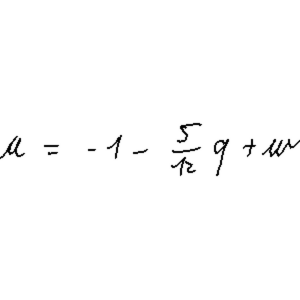 u = -1 - \frac{5}{12} q + w